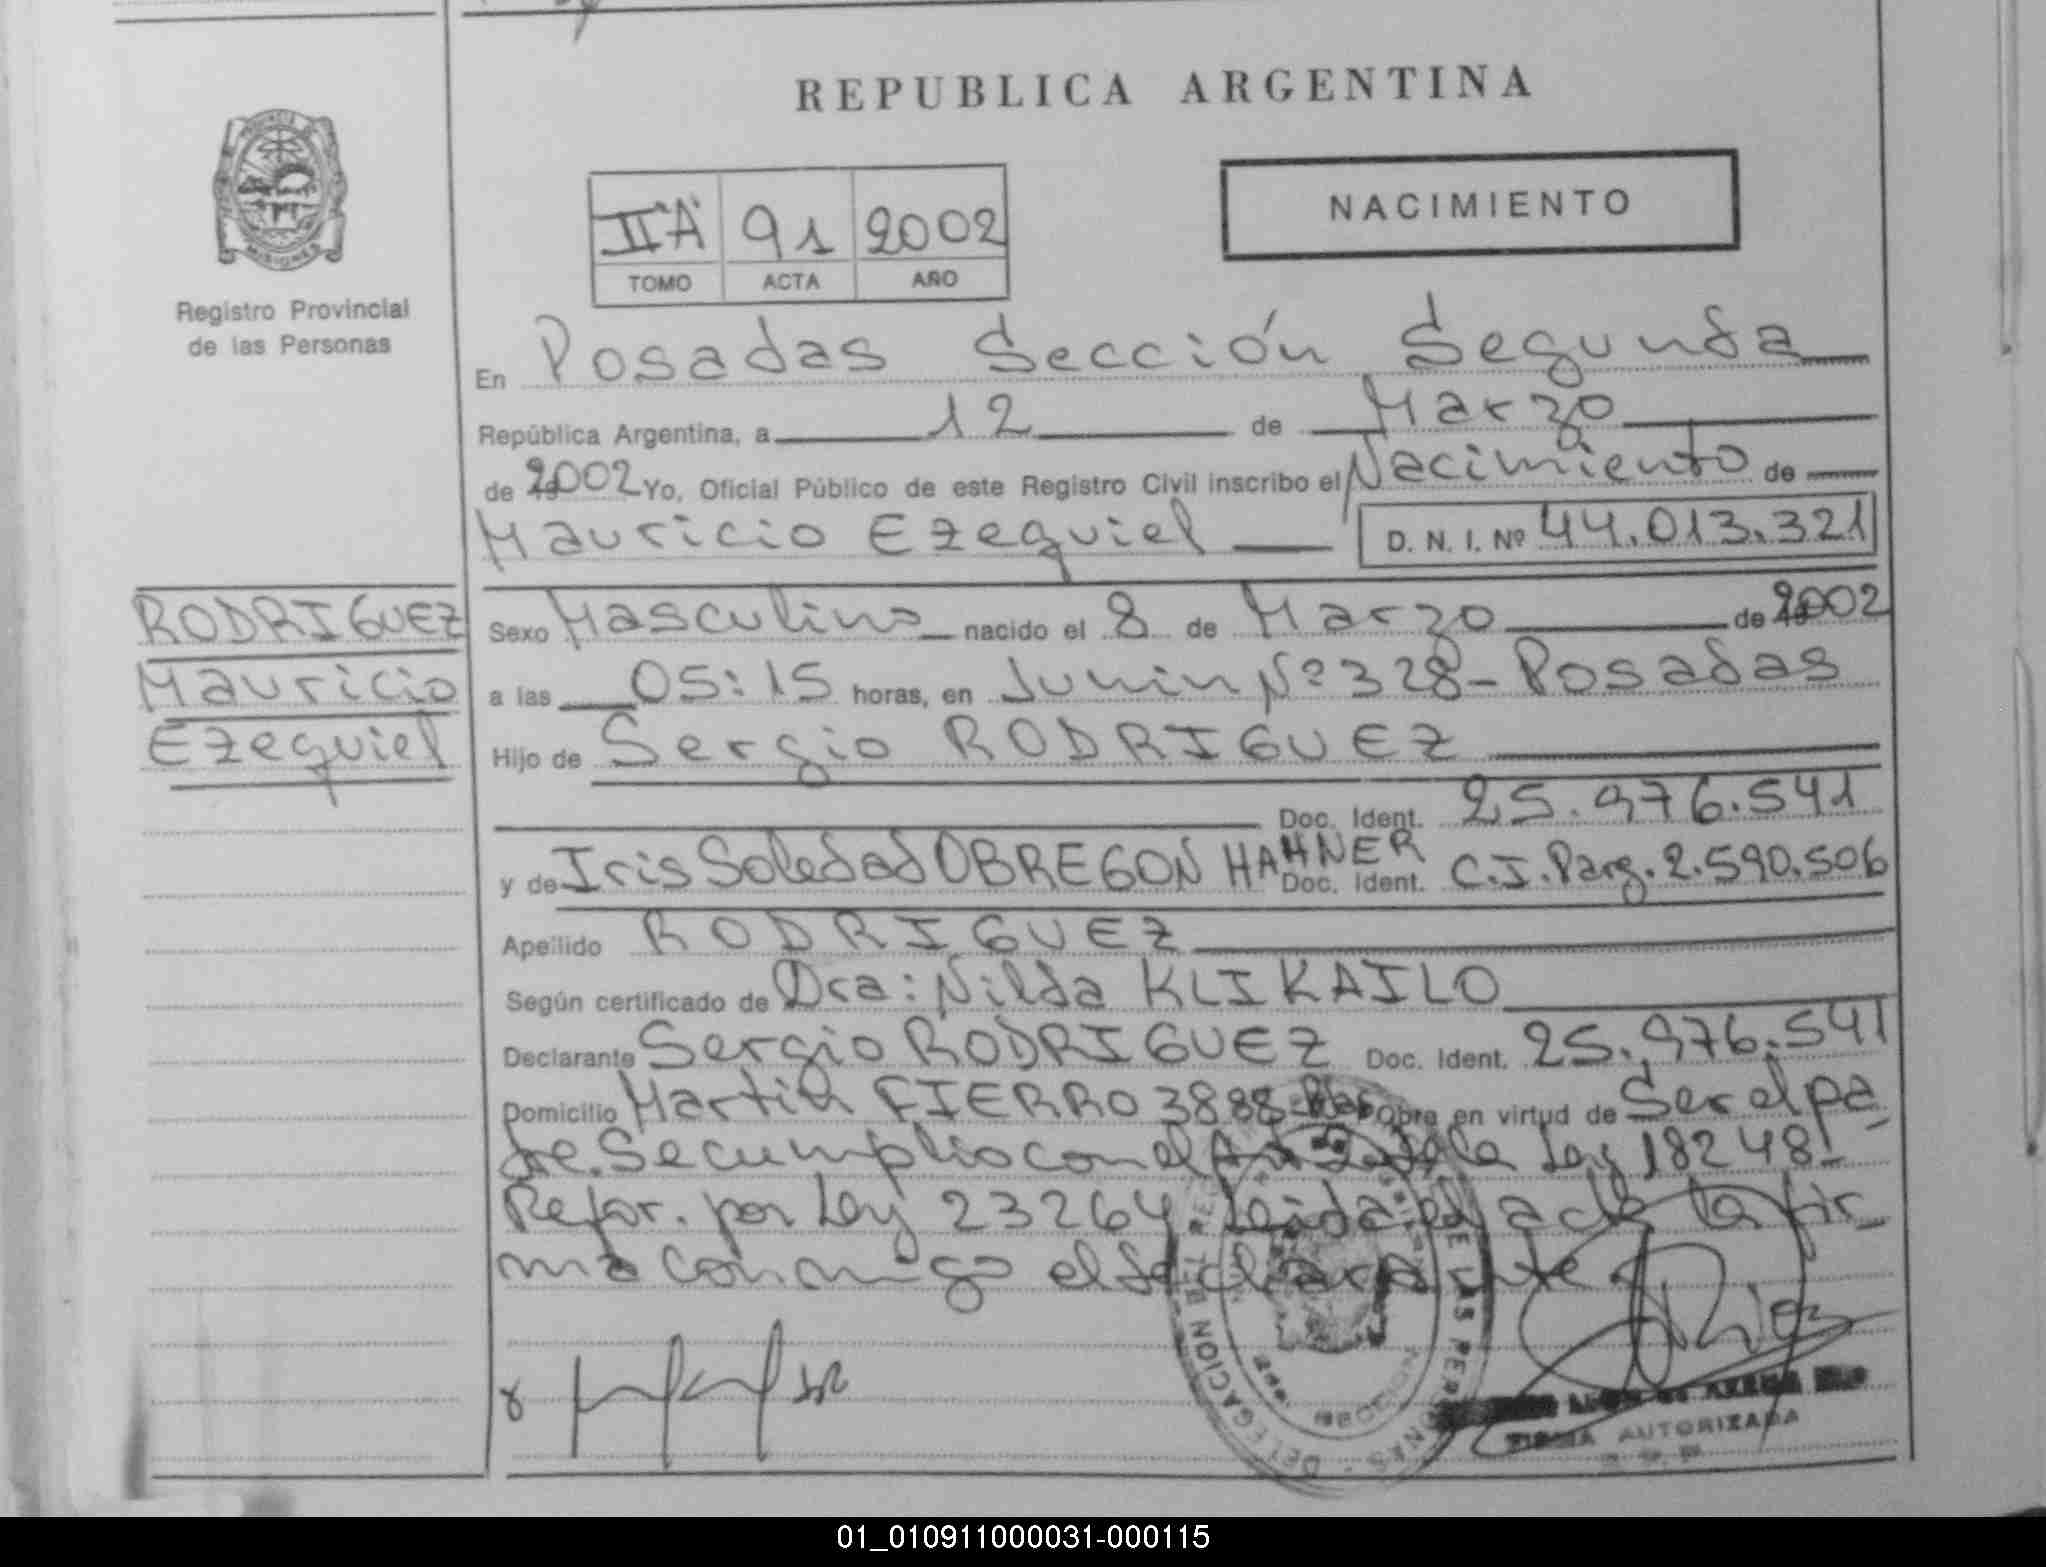 REPUBLICA ARGENTINA
PROVINCIA DE
MISIONES
Registro Provincial
de las Personas
II"A" 91 2002
TOMO ACTA AÑO
NACIMIENTO
En Posadas Sección Segunda
República Argentina, a 12 de Marzo
de 2002 Yo, Oficial Público de este Registro Civil inscribo el Nacimiento de
Mauricio Ezequiel D. N. I. Nº 44.013.321
RODRIGUEZ
Mauricio
Ezequiel
Sexo Masculino nacido el 8 de Marzo de 2002
a las 05:15 horas, en Junin Nº 328 - Posadas
Hijo de Sergio RODRIGUEZ
Doc. Ident. 25.976.541
y de Iris Soledad OBREGON HAHNER Doc. Ident. C.I. Parg. 2.590.506
Apellido RODRIGUEZ
Según certificado de Dra: Nilda KLIKAILO
Declarante Sergio RODRIGUEZ Doc. Ident. 25.976.541
Domicilio Martin FIERRO 3888 Obra en virtud de Ser el pa
dre. Se cumplio con el Art de la Ley 18248-
Refor. por Ley 23264. Leida el acta la fir
ma conmigo el declarante
DELEGACION
DE LAS PERSONAS
FIRMA AUTORIZADA
01_010911000031-000115